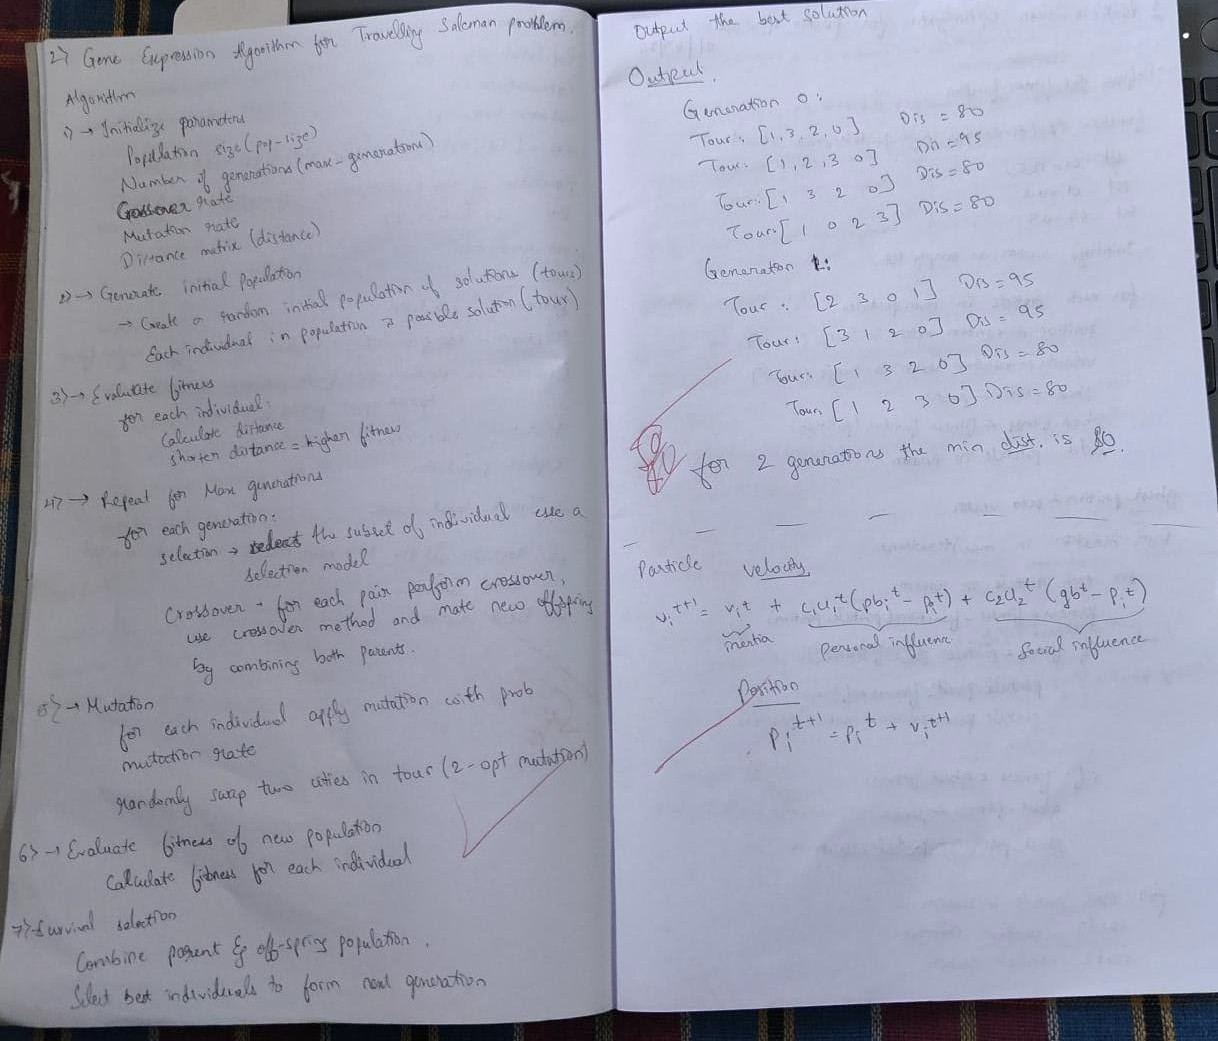 2) Gene Expression Algorithm for Travelling Saleman problem.
Algorithm
1) → Initialize parameters
Popullation size (pop-size)
Number of generations (max-generations)
Crossover rate
Mutation rate
Distance matrix (distance)
2) → Generate initial Population
→ Create a random initial population of solutions (tours)
Each individual in population is possible solution (tour)
3) → Evaluate fitness
for each individual:
Calculate distance
shorter distance = higher fitness
4) → Repeat for Max generations
for each generation:
selection → select the subset of individual use a
selection model
Crossover → for each pair perform crossover,
use crossover method and mate new offspring
by combining both parents.
5) → Mutation
for each individual apply mutation with prob
mutation rate
randomly swap two cities in tour (2-opt mutation)
6) → Evaluate fitness of new population
Calculate fitness for each individual
7) Survival selection
Combine parent & off-spring population.
Select best individuals to form next generation
Output the best solution
Output.
Generation 0:
Tour: [1, 3, 2, 0] Dis = 80
Tour: [1, 2, 3 0] Dis = 95
Tour: [1 3 2 0] Dis = 80
Tour: [1 0 2 3] Dis = 80
Generation 1:
Tour: [2 3 0 1] Dis = 95
Tour: [3 1 2 0] Dis = 95
Tour: [1 3 2 0] Dis = 80
Tour: [1 2 3 0] Dis = 80
for 2 generations the min dist. is 80.
Particle velocity
vᵢᵗ⁺¹ = vᵢᵗ + c₁u₁ᵗ(pbᵢᵗ - pᵢᵗ) + c₂u₂ᵗ(gbᵗ - pᵢᵗ)
inertia personal influenc social influence
Position
pᵢᵗ⁺¹ = pᵢᵗ + vᵢᵗ⁺¹